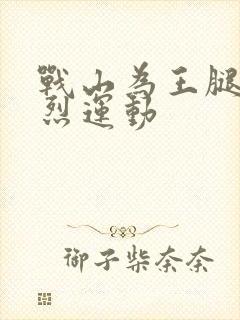 戰山為王腿
烈運動
御子柴奈奈